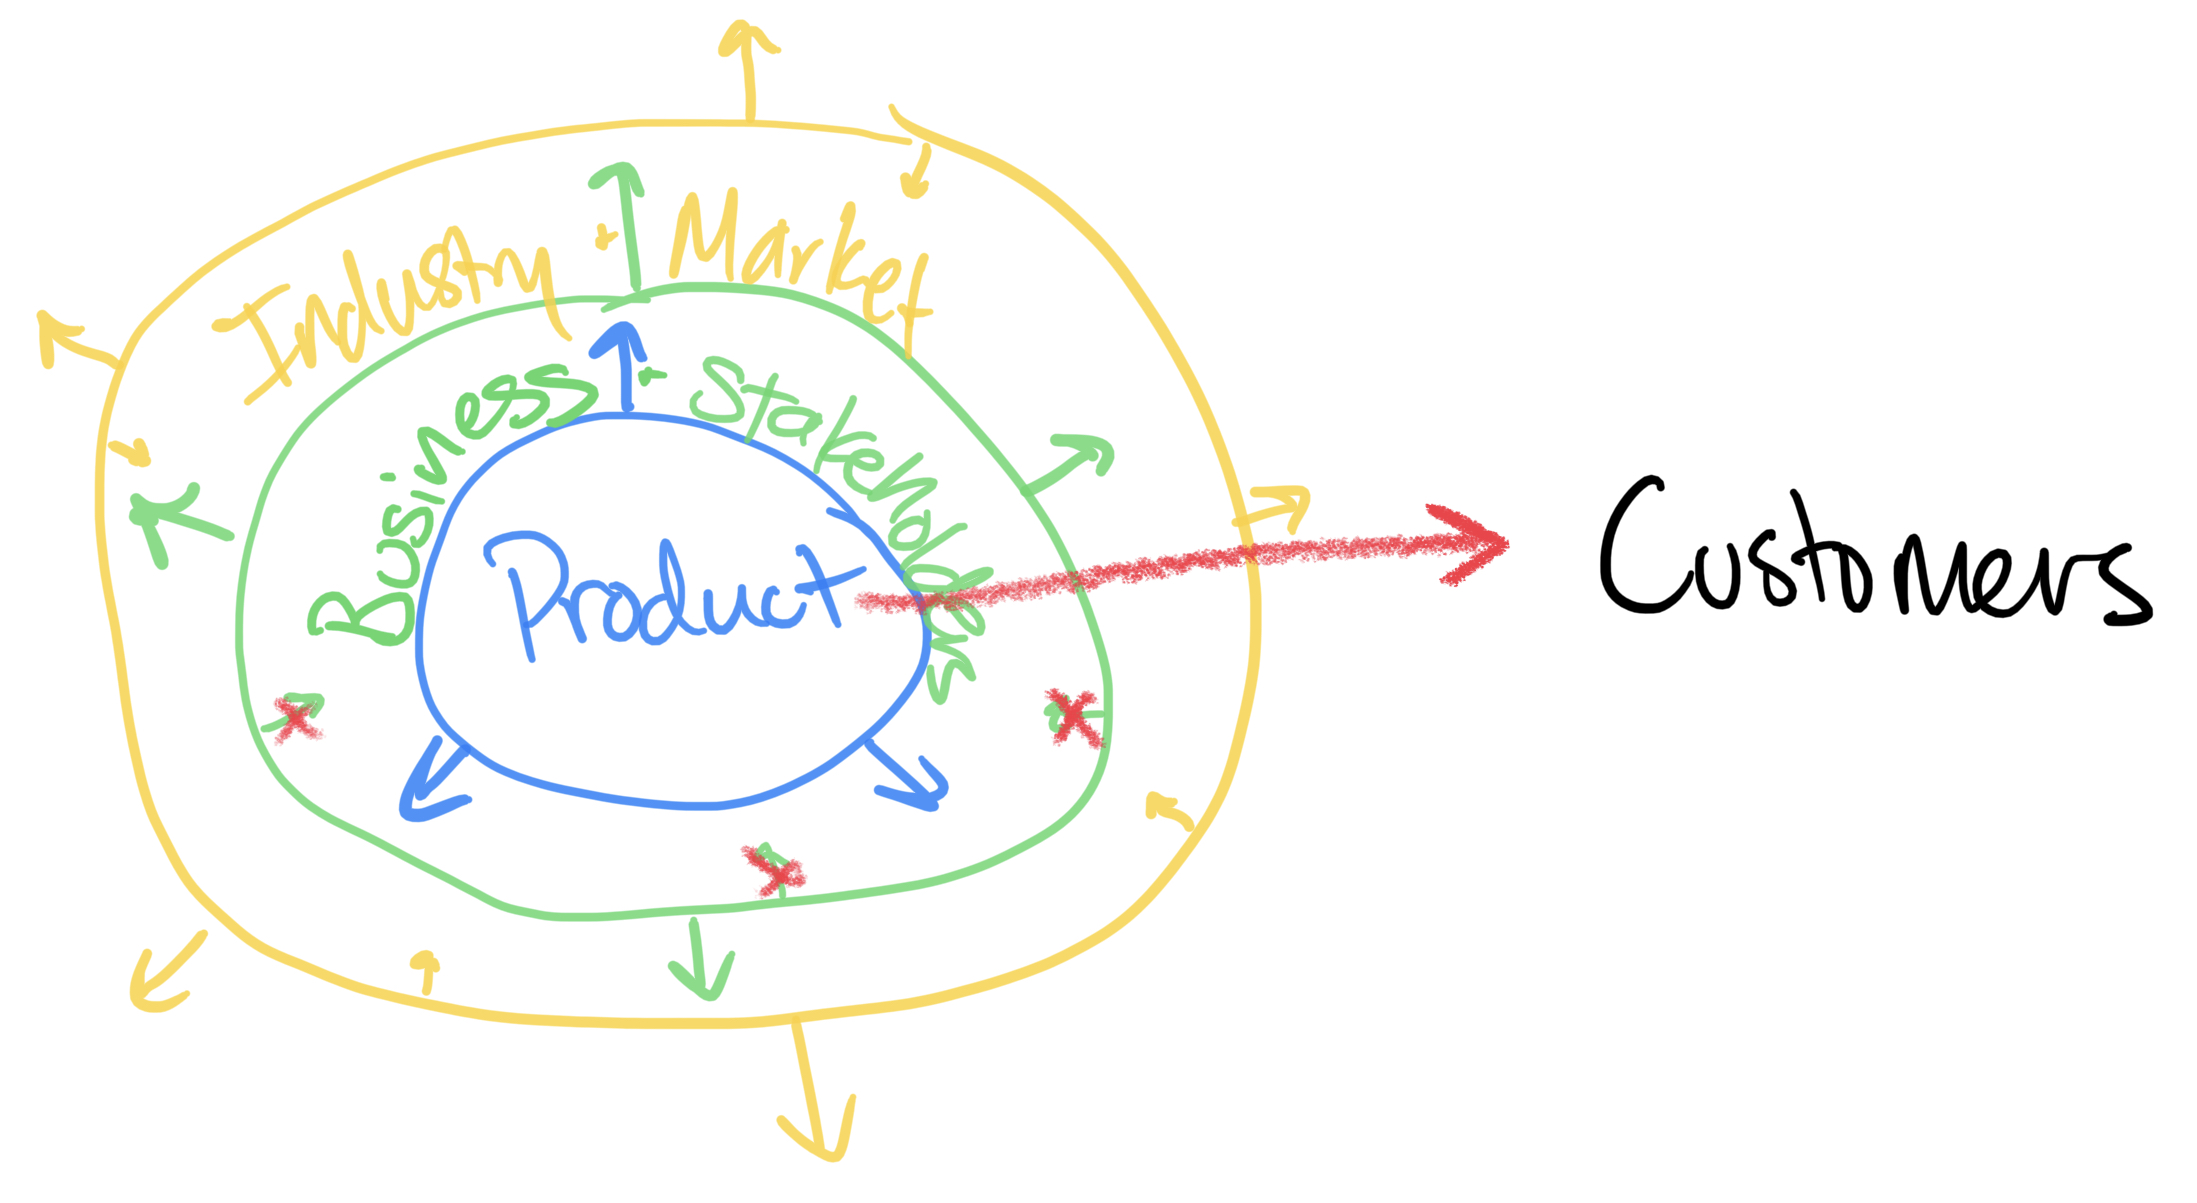 Industry + Market
Business + Stakeholders
Product
Customers